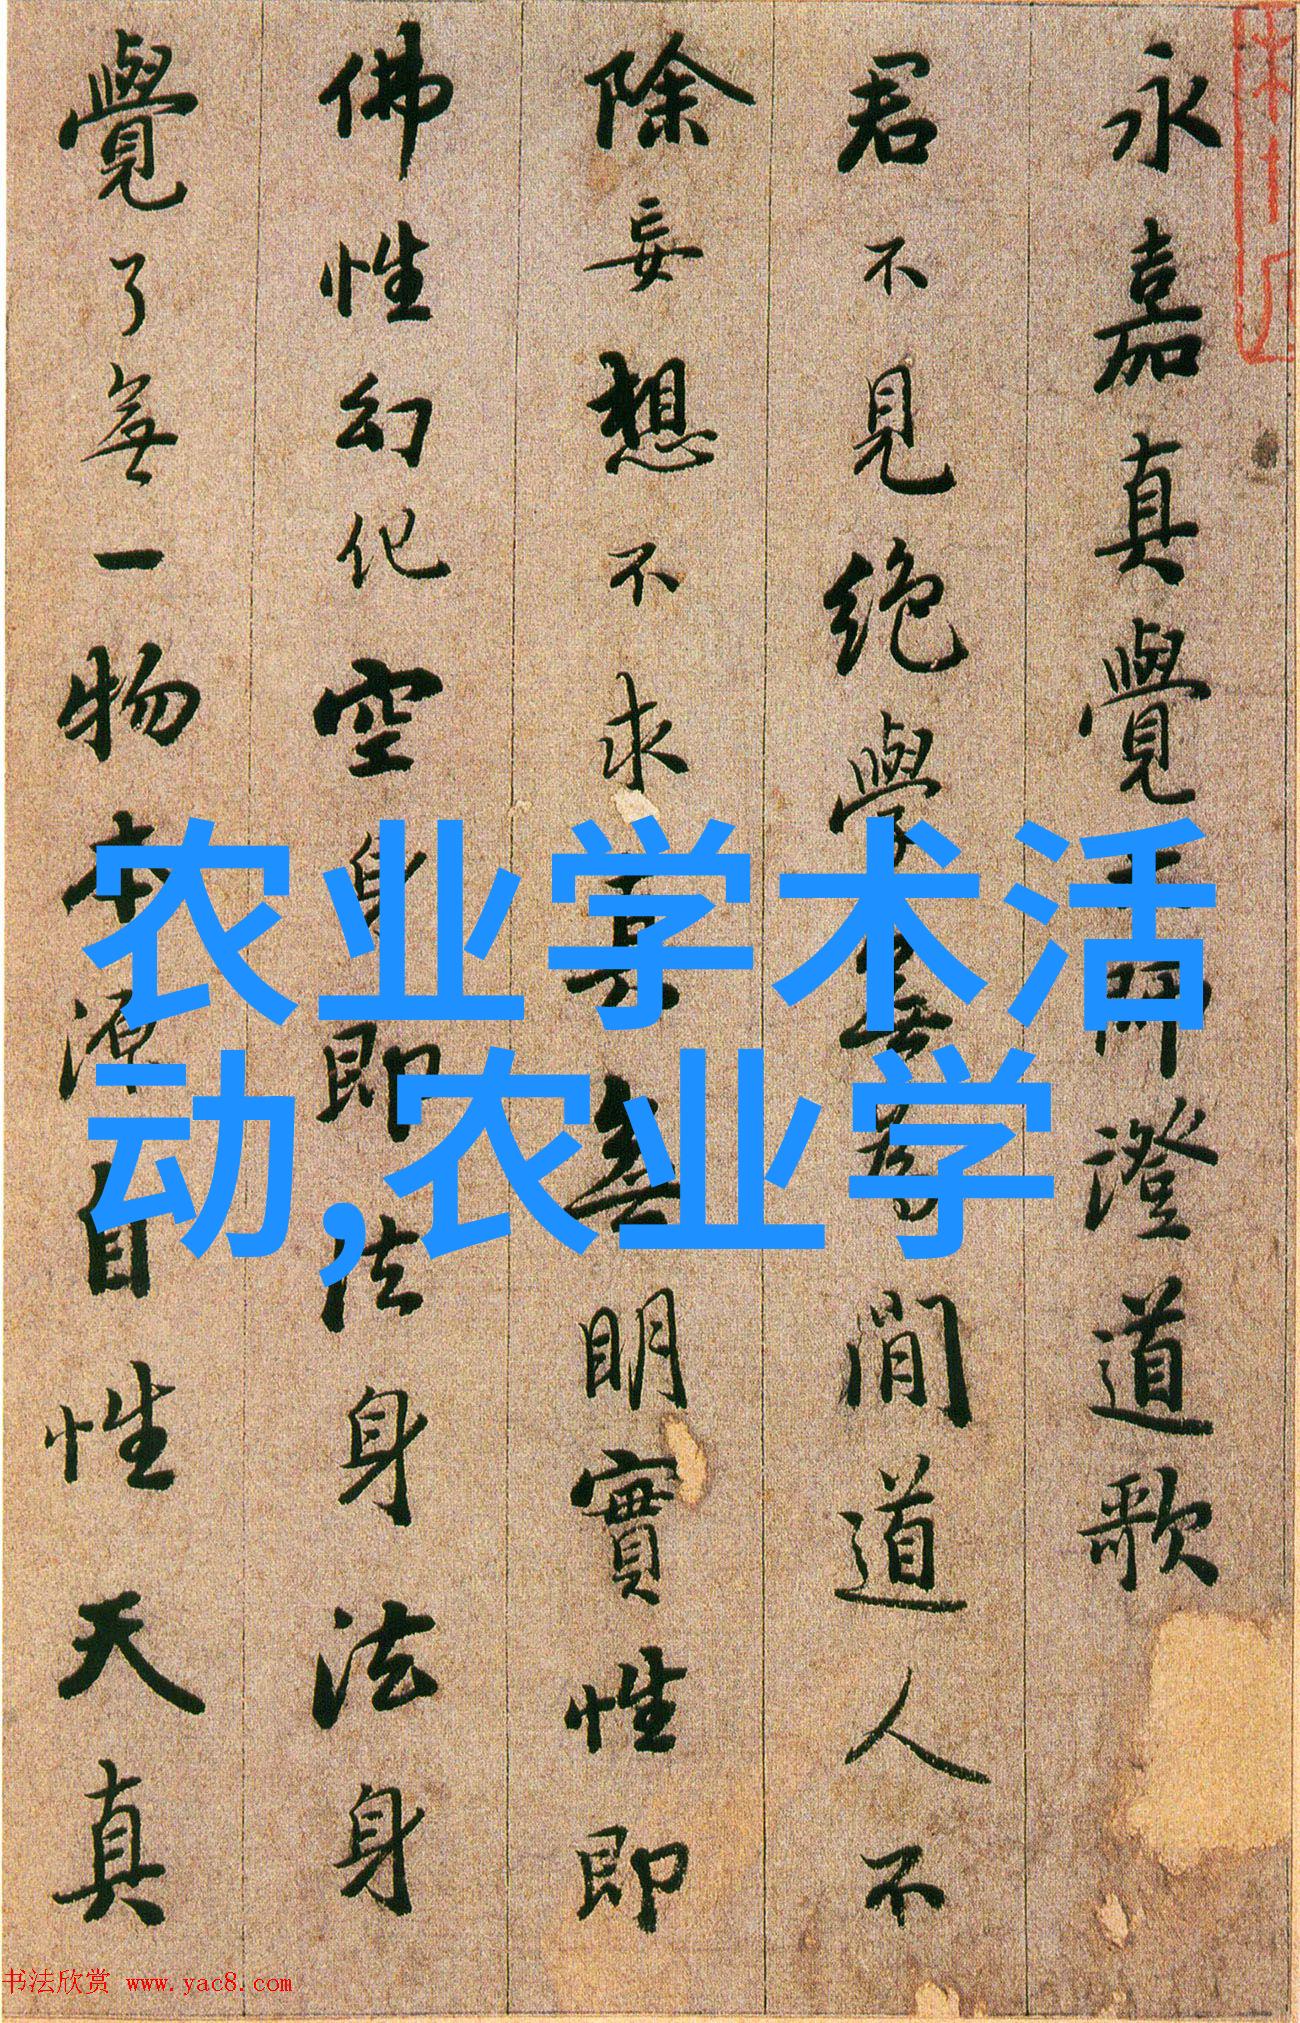 永嘉真覺大師證道歌
君不見絕學無為閒道人不
除妄想不求真無明實性即
佛性幻化空身即法身法身
覺了無一物本源自性天真
农业学术活
动,农业学
书法欣赏 www.yac8.com